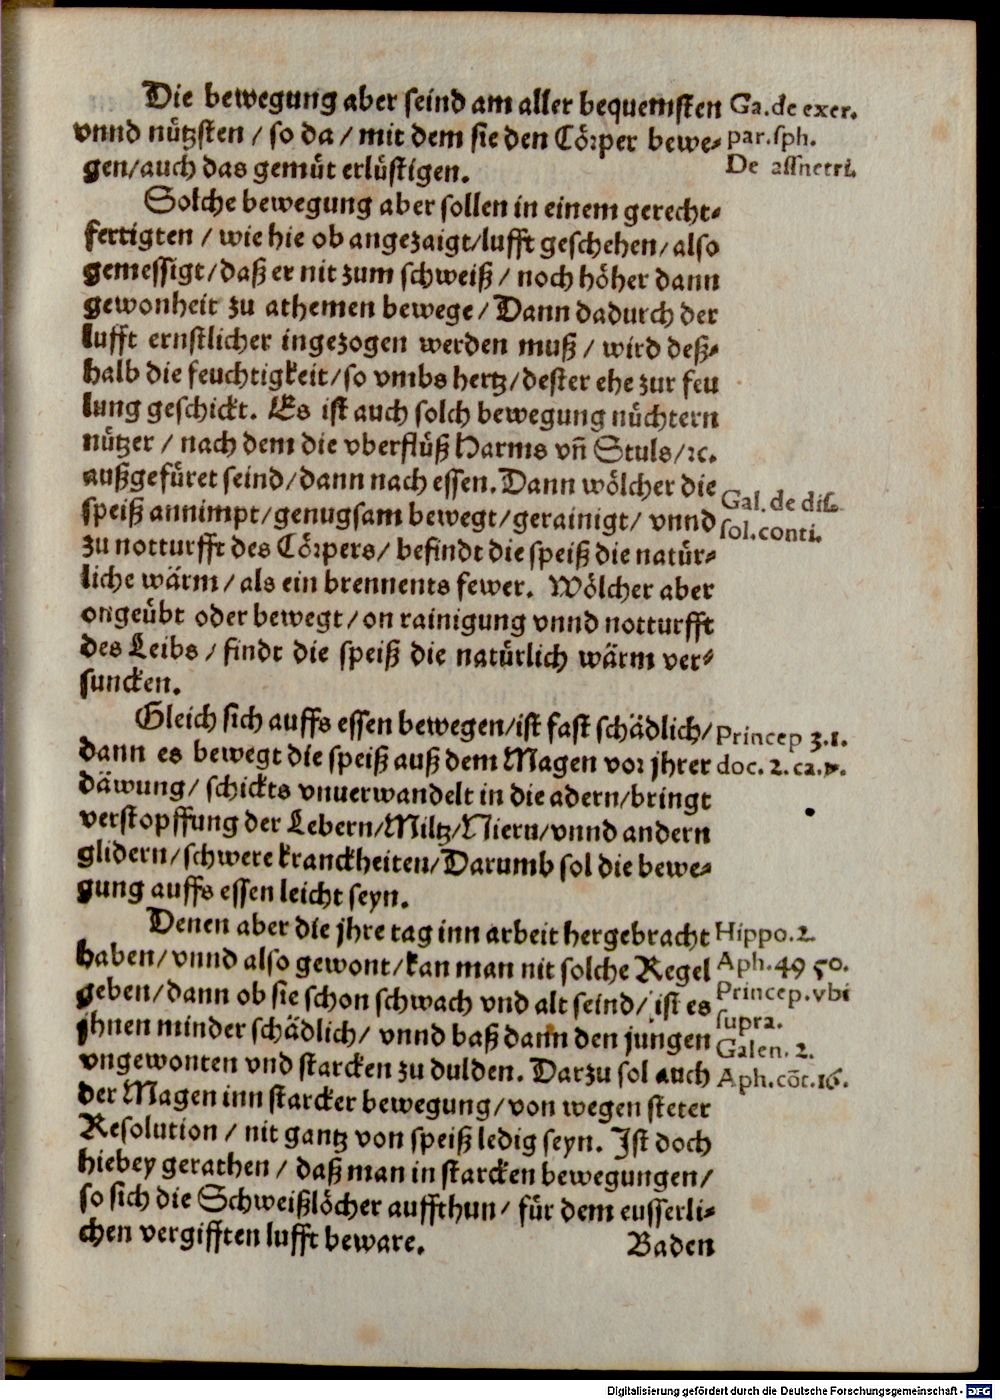 Die bewegung aber seind am aller bequemsten
vnnd nützsten / so da / mit dem sie den Cörper bewe⸗
gen/auch das gemüt erlüstigen.
Ga.de exer.
par.sph.
De assnetri.
Solche bewegung aber sollen in einem gerecht⸗
fertigten / wie hie ob angezaigt/lufft geschehen/also
gemessigt/daß er nit zum schweiß / noch höher dann
gewonheit zu athemen bewege / Dann dadurch der
lufft ernstlicher ingezogen werden muß / wird deß⸗
halb die feuchtigkeit/so vmbs hertz/dester ehe zur feu
lung geschickt. Es ist auch solch bewegung nüchtern
nützer / nach dem die vberflüß Harms vñ Stuls/ꝛc.
außgefüret seind/dann nach essen. Dann wölcher die
speiß annimpt/genugsam bewegt/gerainigt/ vnnd
zu notturfft des Cörpers/ befindt die speiß die natür⸗
liche wärm / als ein brennents fewer. Wölcher aber
ongeübt oder bewegt / on rainigung vnnd notturfft
des Leibs / findt die speiß die natürlich wärm ver⸗
suncken.
Gal.de dis.
sol.conti.
Gleich sich auffs essen bewegen/ist fast schädlich/
dann es bewegt die speiß auß dem Magen vor jhrer
däwung/ schickts vnuerwandelt in die adern/bringt
verstopffung der Lebern/Miltz/Niern/vnnd andern
glidern/schwere kranckheiten/Darumb sol die bewe⸗
gung auffs essen leicht seyn.
Princep 3.1.
doc. 2. ca.
Denen aber die jhre tag inn arbeit hergebracht
haben/vnnd also gewont/kan man nit solche Regel
geben/dann ob sie schon schwach vnd alt seind/ ist es
jhnen minder schädlich/ vnnd baß dann den jungen
vngewonten vnd starcken zu dulden. Darzu sol auch
der Magen inn starcker bewegung/von wegen steter
Resolution / nit gantz von speiß ledig seyn. Ist doch
hiebey gerathen / daß man in starcken bewegungen/
so sich die Schweißlöcher auffthun/ für dem eusserli⸗
chen vergifften lufft beware.
Hippo.2.
Aph.49 50.
Princep.vbi
supra.
Galen. 2.
Aph.cõt.16.
Baden
Digitalisierung gefördert durch die Deutsche Forschungsgemeinschaft - DFG